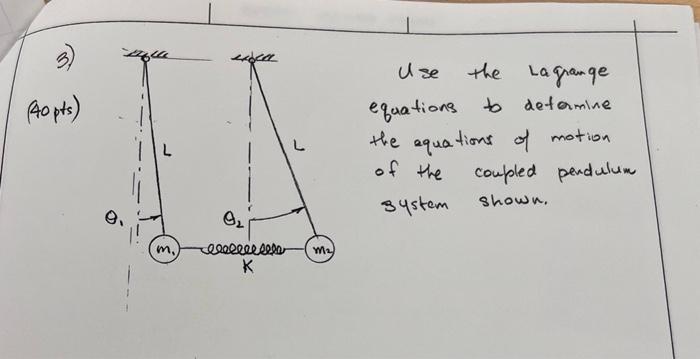 3)
(40 pts)
L
L
θ₁
θ₂
m₁
m₂
K
Use the Lagrange
equations to determine
the equations of motion
of the coupled pendulum
system shown.